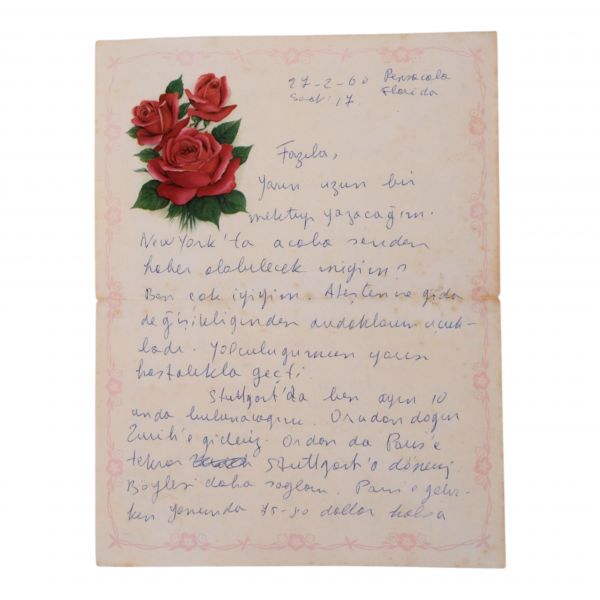 27-2-60 Pensacola
Saat: 17 Florida
Fazıla,
Yarın uzun bir
mektup yazacağım.
New York'ta acaba senden
haber alabilecek miyim?
Ben çok iyiyim. Ateşten ve gıda
değişikliğinden dudaklarım uçuk-
ladı. Yolculuğumun yarısı
hastalıkla geçti.
Stuttgart'da ben ayın 10
unda bulunacağım. Oradan doğru
Zurih'e gideriz. Ordan da Paris'e
tekrar Stuttgart'a döneriz.
Böylesi daha sağlam. Paris'e gelir-
ken yanımda 75-80 dollar kalsa